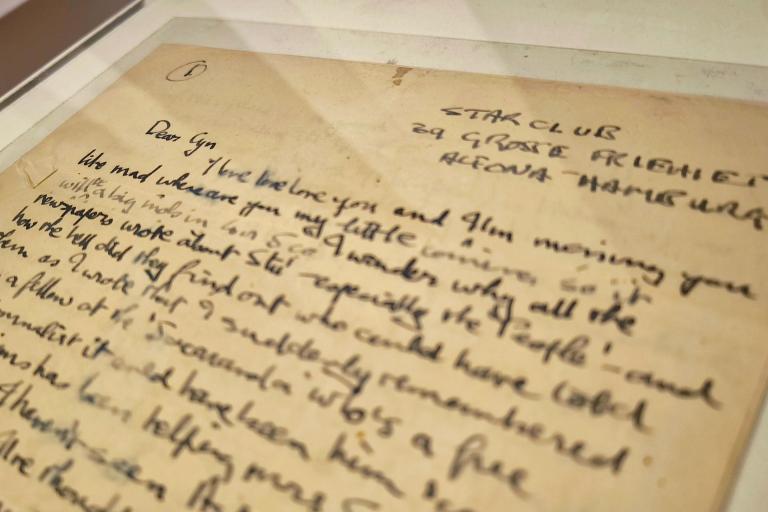 1
STAR CLUB
39 GROSSE FRIEHIET
ALTONA - HAMBURG
Dear Cyn
I love love love you and I'm missing you
like mad where are you my little
I wonder why all the
newspapers wrote about Stu - especially the 'People' - and
how the hell did they find out who could have told
them as I wrote that I suddenly remembered
a fellow at the 'Jacaranda' who's a free
journalist it could have been him
has been helping
I haven't seen